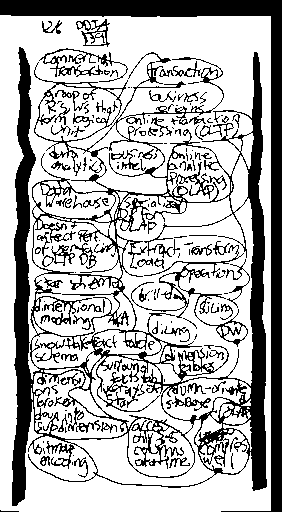 12/6 DDIA
commercial transaction
transaction
group of R's, W's that form logical unit
business origins
online transaction processing (OLTP)
data analytics
business intel
online analytic processing (OLAP)
Data warehouse
specialized DB for OLAP
Doesn't affect perf of
OLTP DB
Extract, Transform Load
operations
star schema
drill-down
slicing
dimensional modeling
AKA
dicing
DW
snowflake schema
fact table
dimension tables
dimensions broken down into subdimensions
surround
star
column-oriented
access only
columns at a time
compress well
bitmap encoding